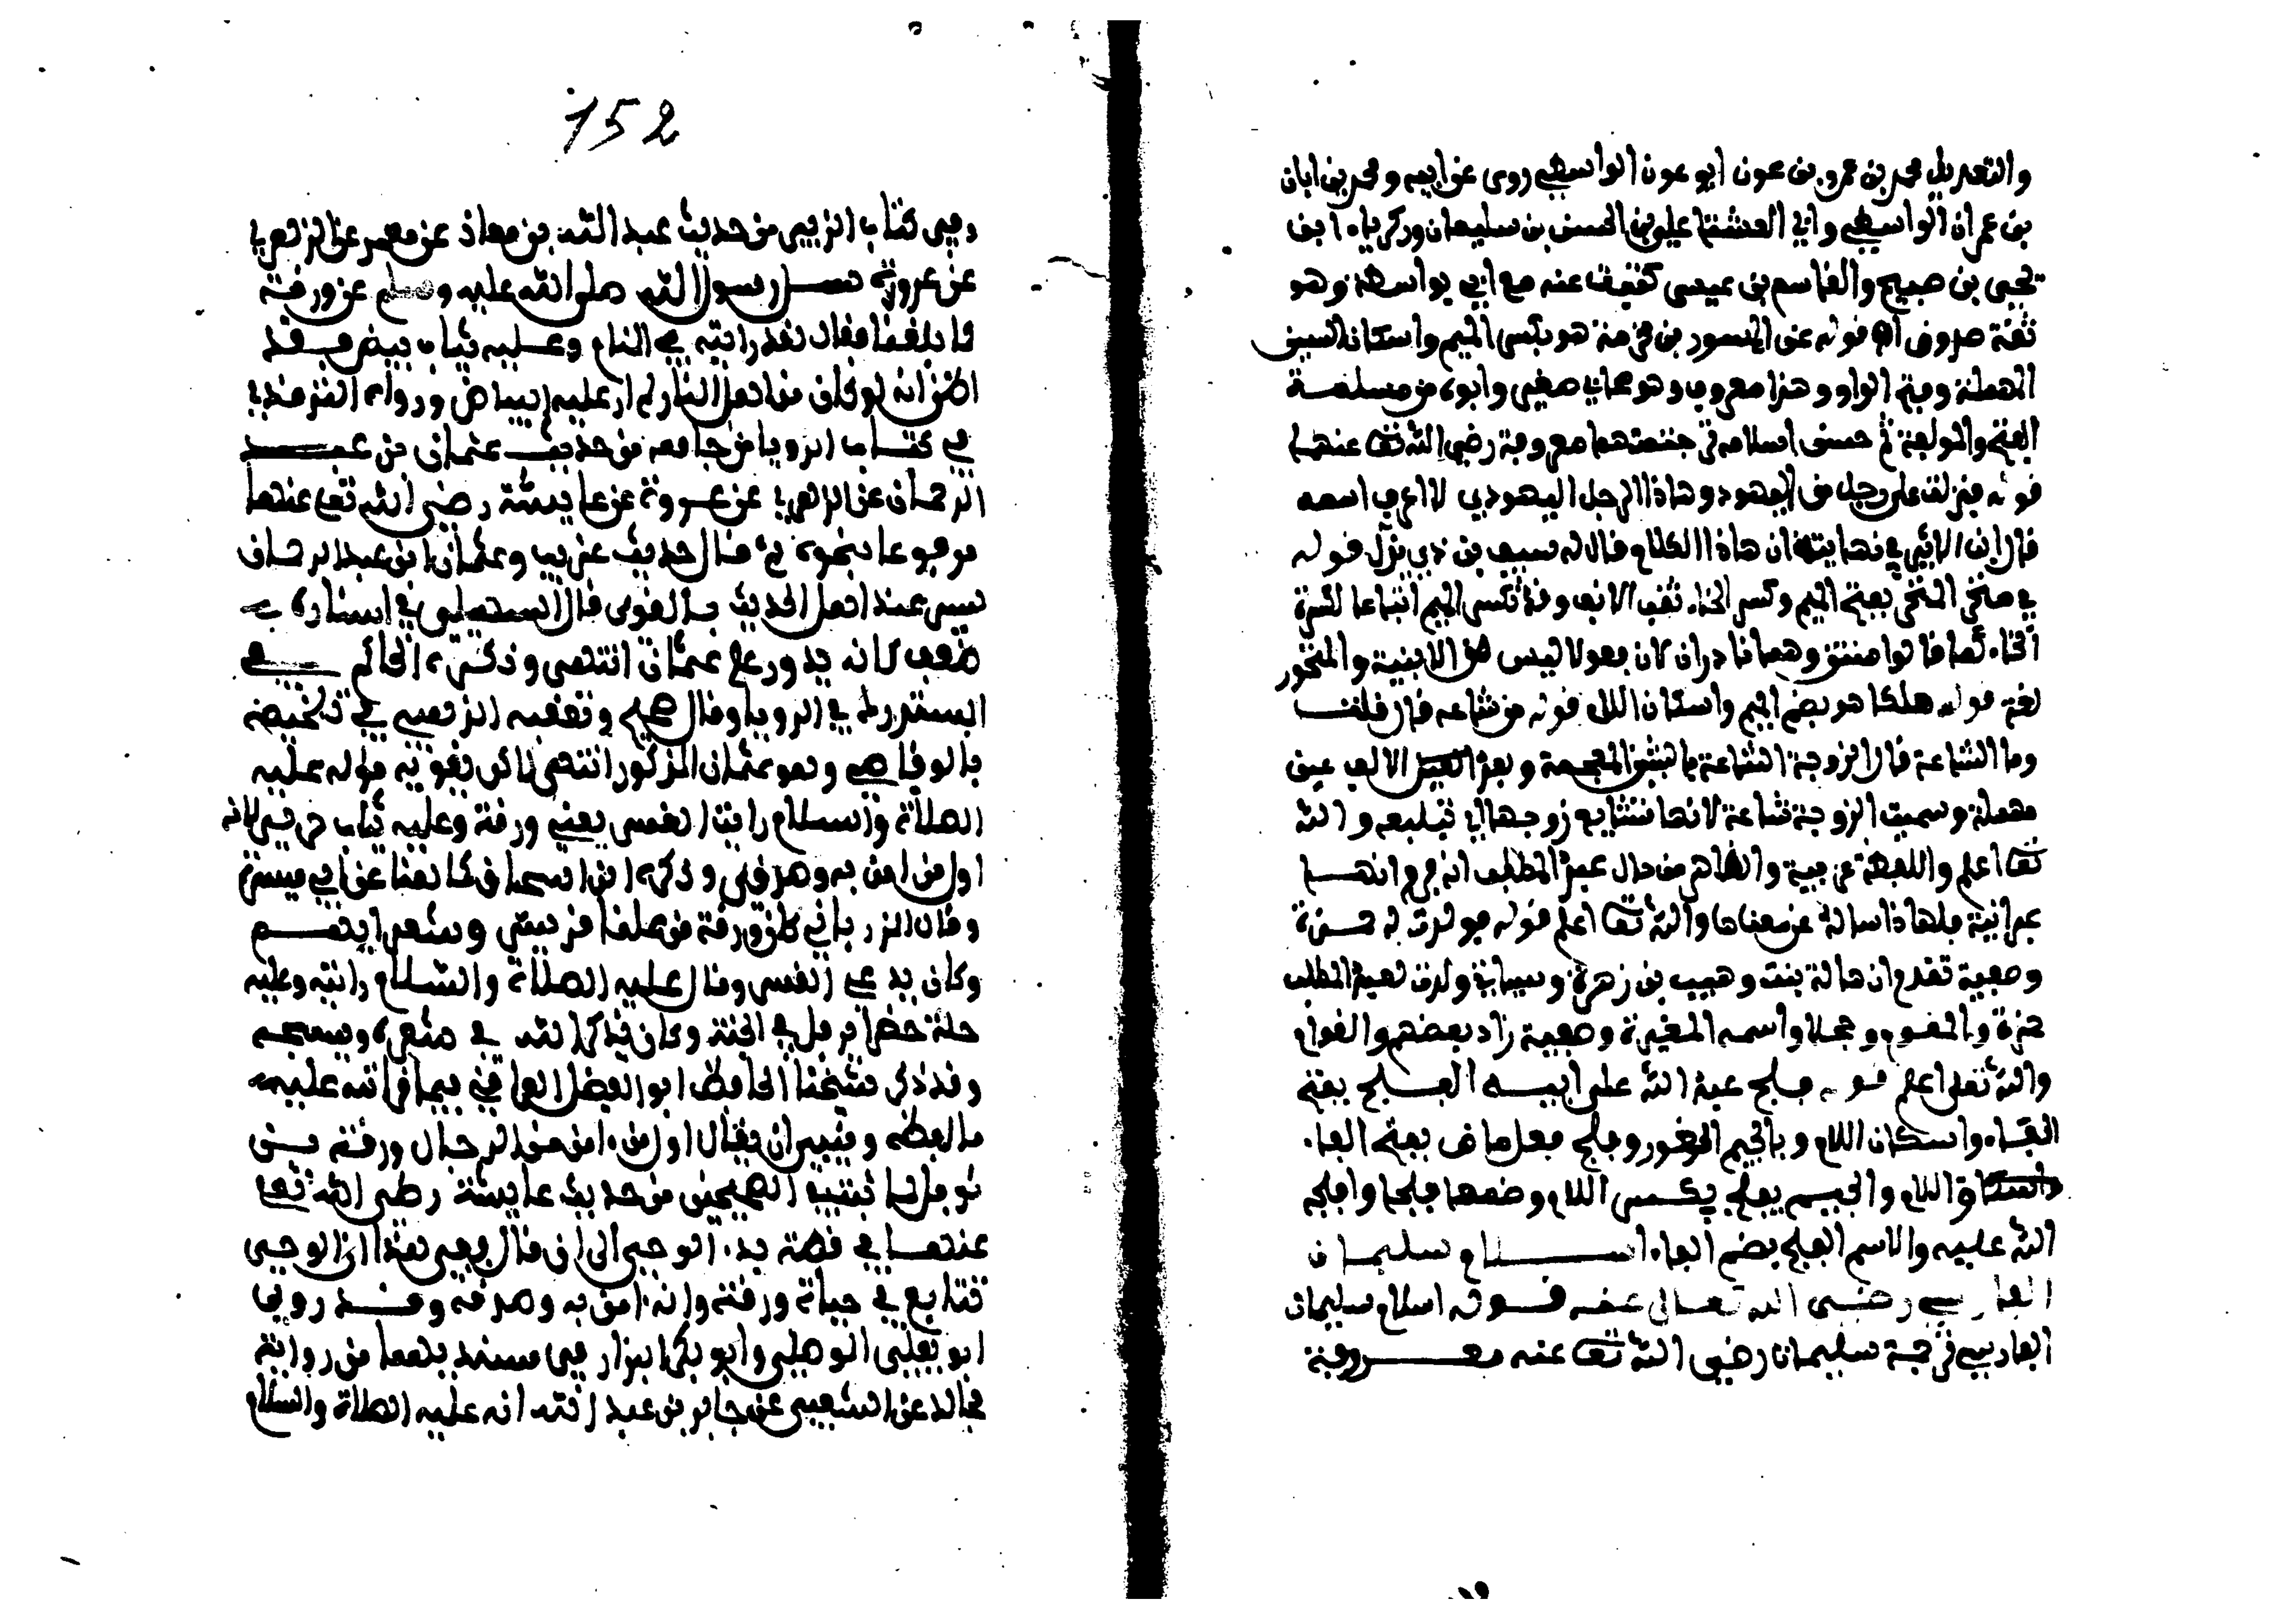 والتعديل محمد بن عمرو بن عون ابو عون الواسطي روى عن ابيه و محمد بن ابان
بن عمران الواسطي وابي الشعثا علي بن الحسن بن سليمان وزكرياء ابن
يحيى بن صبيح والقاسم بن عيسى كتبت عنه مع ابي بواسط وهو
ثقة صدوق قوله عن المسور بن مخرمة هو بكسر الميم واسكان السين
المهملة وفتح الواو وهذا معروف وهو صحابي صغير وابوه من مسلمة
الفتح والمولفة ثم حسن اسلامه ترجمتهما معروفة رضي الله تعا عنهما
قوله فنزلت على رجل من اليهود وهاذا الرجل اليهودي لا اعرف اسمه
قال ابن الاثير في نهايته ان هاذا الكلام قاله سيف بن ذي يزن قوله
في منخر المنخر بفتح الميم وكسر الخاء ثقب الانف وقد تكسر الميم اتباعا لكسرة
الخاء كما قالوا منتن وهما نادران لان مفعلا ليس من الابنية والمنخور
لغة قوله هلكا هو بضم الميم واسكان اللام قوله من شاعة قال قلت
وما الشاعة قال الزوجة الشاعة بالشين المعجمة وبعد الالف عين
مهملة وسميت الزوجة شاعة لانها تشايع زوجها اي تتابعه والله
تعا اعلم واللفظة عربية والظاهر من حال عبد المطلب انه فهم انها
عبرانية فلهاذا ساله عن معناها والله تعا اعلم قوله فولدت له حمزة
وصفية تقدم ان هالة بنت وهيب بن زهرة وسياتي ولدت لعبد المطلب
حمزة والمقوم وحجلا واسمه المغيرة وصفية زاد بعضهم والعوام
والله تعلى اعلم قوله فلج عبد الله على ابيه الفلج بفتح
الفاء واسكان اللام وبالجيم الظفور وفلج فعل ماض بفتح الفاء
واللام والجيم يفلج بكسر اللام وضمها فلجا وافلجه
الله عليه والاسم الفلج بضم الفاء اسلام سليمان
الفارسي رضي الله تعالى عنه قوله اسلام سليمان
الفارسي ترجمة سليمان رضي الله تعا عنه معروفة
152
وفي كتاب الزبير من حديث عبد الله بن معاذ عن معمر عن الزهري
عن عروة سئل رسول الله صلى الله عليه وسلم عن ورقة
كما بلغنا فقال لقد رايته في المنام وعليه ثياب بيض فقد
اظن انه لو كان من اهل النار لم ار عليه البياض ورواه الترمذي
في كتاب الرويا من جامعه من حديث عثمان بن عبد
الرحمان عن الزهري عن عروة عن عايشة رضي الله تعا عنها
مرفوعا بنحوه ثم قال حديث غريب وعثمان ابن عبد الرحمان
ليس عند اهل الحديث بالقوي قال السهيلي في اسناده
ضعف لانه يدور على عثمان انتهى وذكره الحاكم في
المستدرك في الرويا وقال صحيح وتعقبه الذهبي في تلخيصه
بالوقاصي وهو عثمان المذكور انتهى لاكن يقويه قوله عليه
الصلاة والسلام رايت القس يعني ورقة وعليه ثياب حرير لانه
اول من امن به وصدقني وذكره ابن اسحاق كما نعنا عن ابي ميسرة
وقال المرزباني كان ورقة من علما قريش وشعرايهم
وكان يدعى القس وقال عليه الصلاة والسلام رايته وعليه
حلة خضرا يرفل في الجنة وكان يذكر الله في شعره ويسبحه
وقد ذكر شيخنا الحافظ ابو الفضل العراقي فيما قراته عليه
ما لفظه وينبغي ان يقال اول من امن من الرجال ورقة بن
نوفل لما ثبت في الصحيحين من حديث عايشة رضي الله تعا
عنها في قصة بدء الوحي الى ان قال ففي هذا ان الوحي
تتابع في حياة ورقة وانه امن به وصدقه وقد روى
ابو يعلى الموصلي وابو بكر البزار في مسنديهما من رواية
مجالد عن الشعبي عن جابر بن عبد الله انه عليه الصلاة والسلام